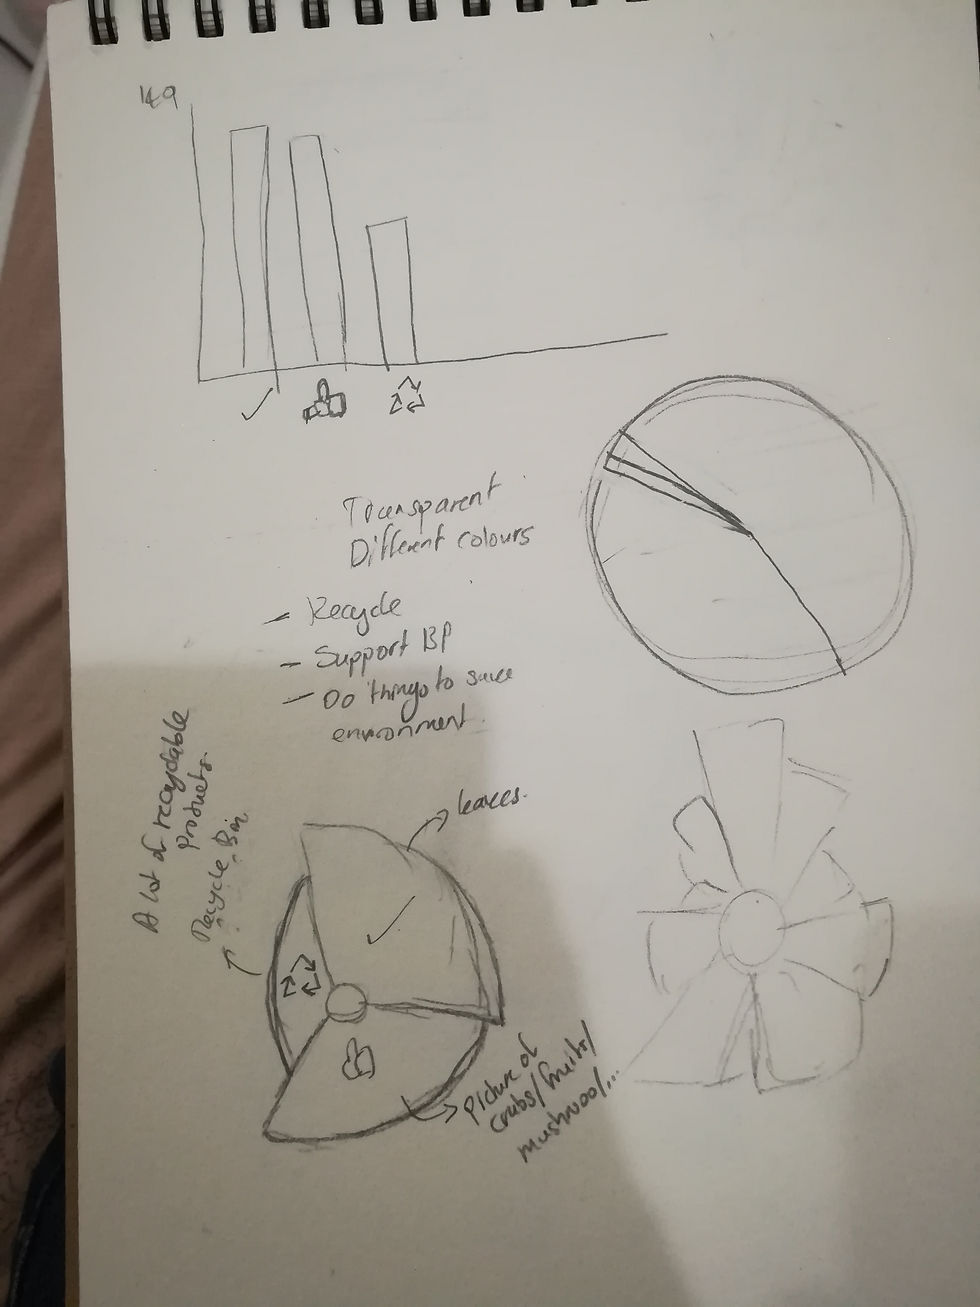 149
Transparent
Different colours
- Recycle
- Support BP
- Do things to save
environment.
leaves.
A lot of recyclable
products.
Recycle Bin
Picture of
crabs/fruits/
mushroo/...